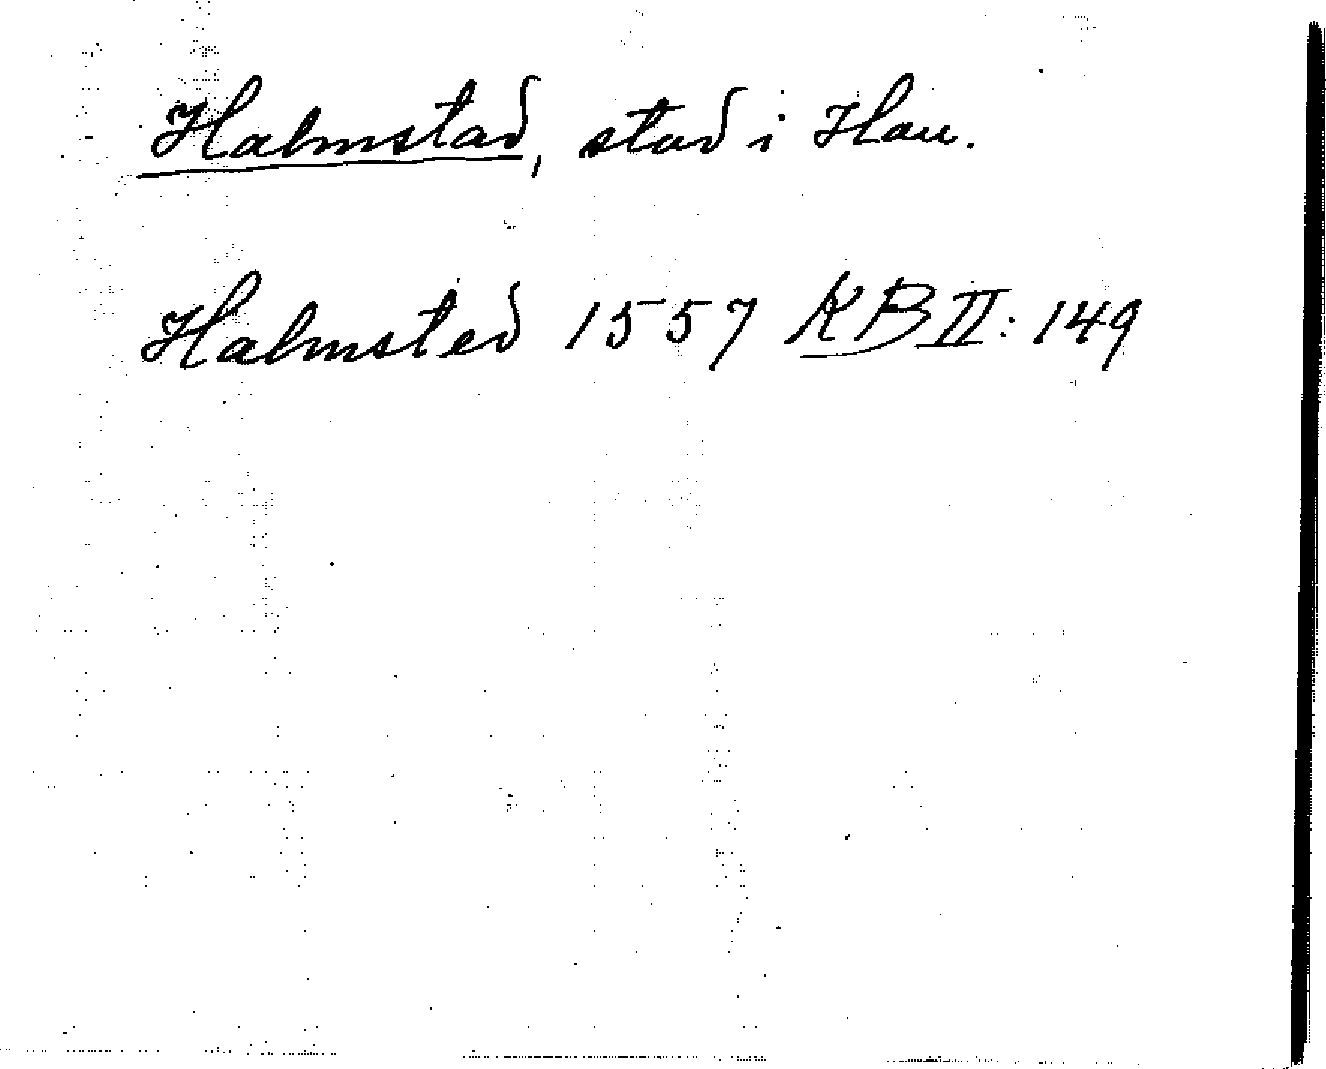 Halmstad, stad i Hall.
Halmsted 1557 KB II: 149